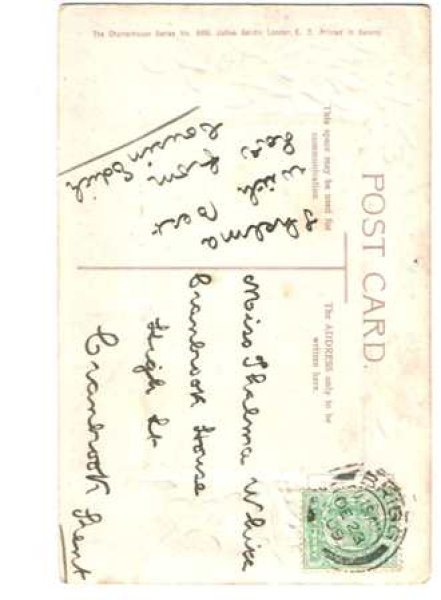 POST CARD.
This space may be used for
communication.
The ADDRESS only to be
written here.
Thelma
with
from
Cousin Edith
Miss Thelma White
Cranbrook House
High St
Cranbrook Kent
BRIGG
DE 23
09
The Charterhouse Series No. London, E. C. Printed in Saxony